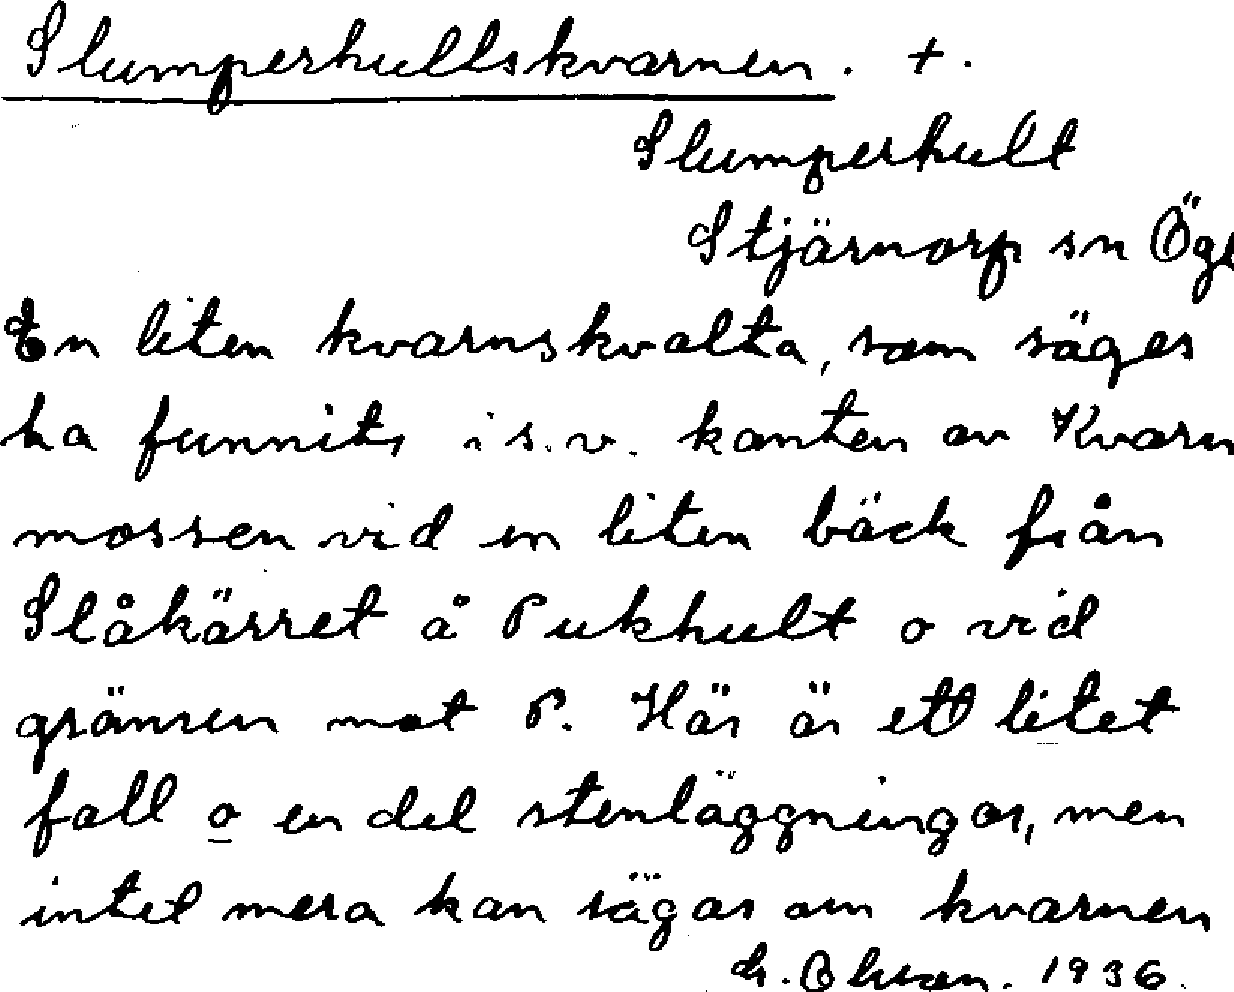 Slumperhultskvarnen. +.
Slumperhult
Stjärnorp sn Ögl
En liten kvarnskvalta, som säges
ha funnits i s.v. kanten av Kvarn
mossen vid en liten bäck från
Slåkärret å Pukhult o vid
gränsen mot P. Här är ett litet
fall o en del stenläggningar, men
intet mera kan sägas om kvarnen
1936.